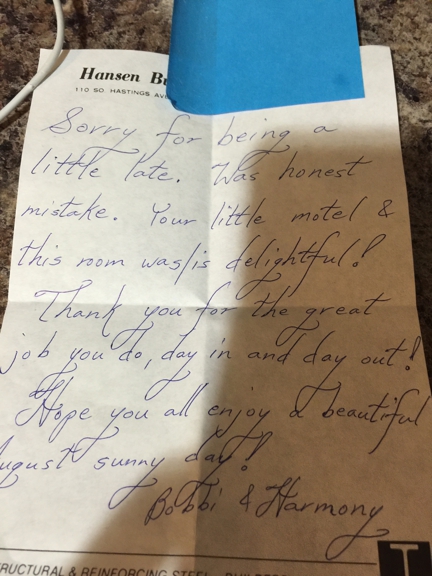 Hansen
110 SO. HASTINGS
Sorry for being a
little late. Was honest
mistake. Your little motel &
this room was/is delightful!
Thank you for the great
job you do, day in and day out!
Hope you all enjoy a beautiful
August sunny day!
Bobbi & Harmony
& REINFORCING STEEL